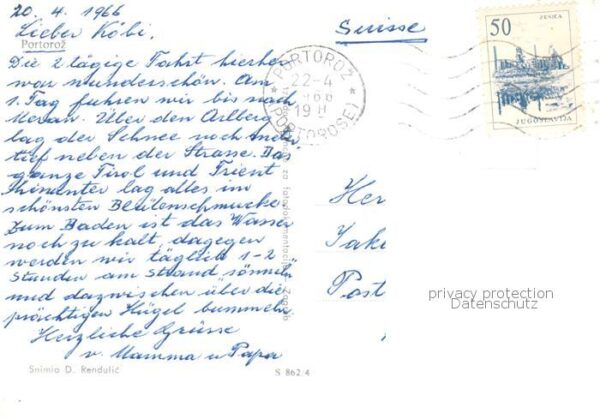 20. 4. 1966
Lieber Köbi,
Portorož
Die 2 tägige Fahrt hierher
war wunderschön. Am
1. Tag fuhren wir bis nach
Meran. Über den Arlberg
lag der Schnee noch meter
tief neben der Strasse. Das
ganze Tirol und Trient
hinunter lag alles im
schönsten Blütenschmucke.
Zum Baden ist das Wasser
noch zu kalt, dagegen
werden wir täglich 1-2
Stunden am Strand "sönnele"
und dazwischen über die
prächtigen Hügel bummeln
Herzliche Grüsse
v. Mamma u Papa
Snimio D. Rendulić
S 862/4
Suisse
PORTOROŽ
22-4
19 II
(PORTOROSE)
50
ZENICA
JUGOSLAVIJA
Her
Jak
Post
privacy protection
Datenschutz